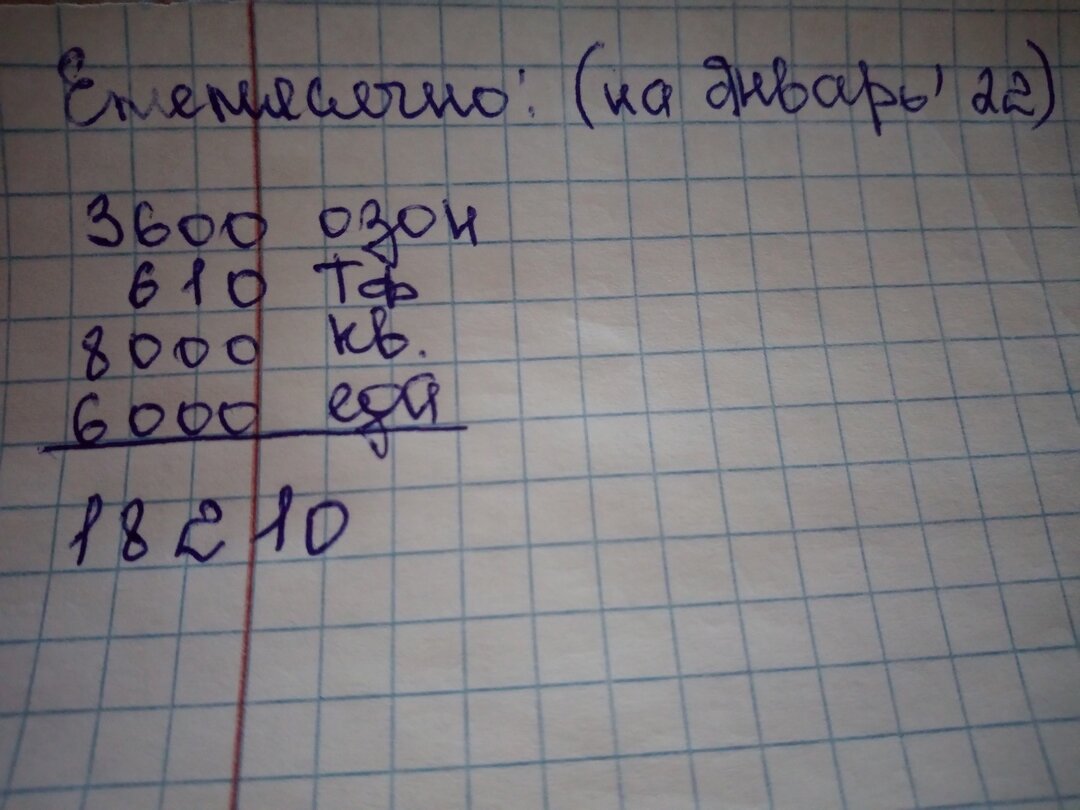 Ежемесячно: (на январь' 22)
3600 озон
610 Тф
8000 кв.
6000 еда
18210